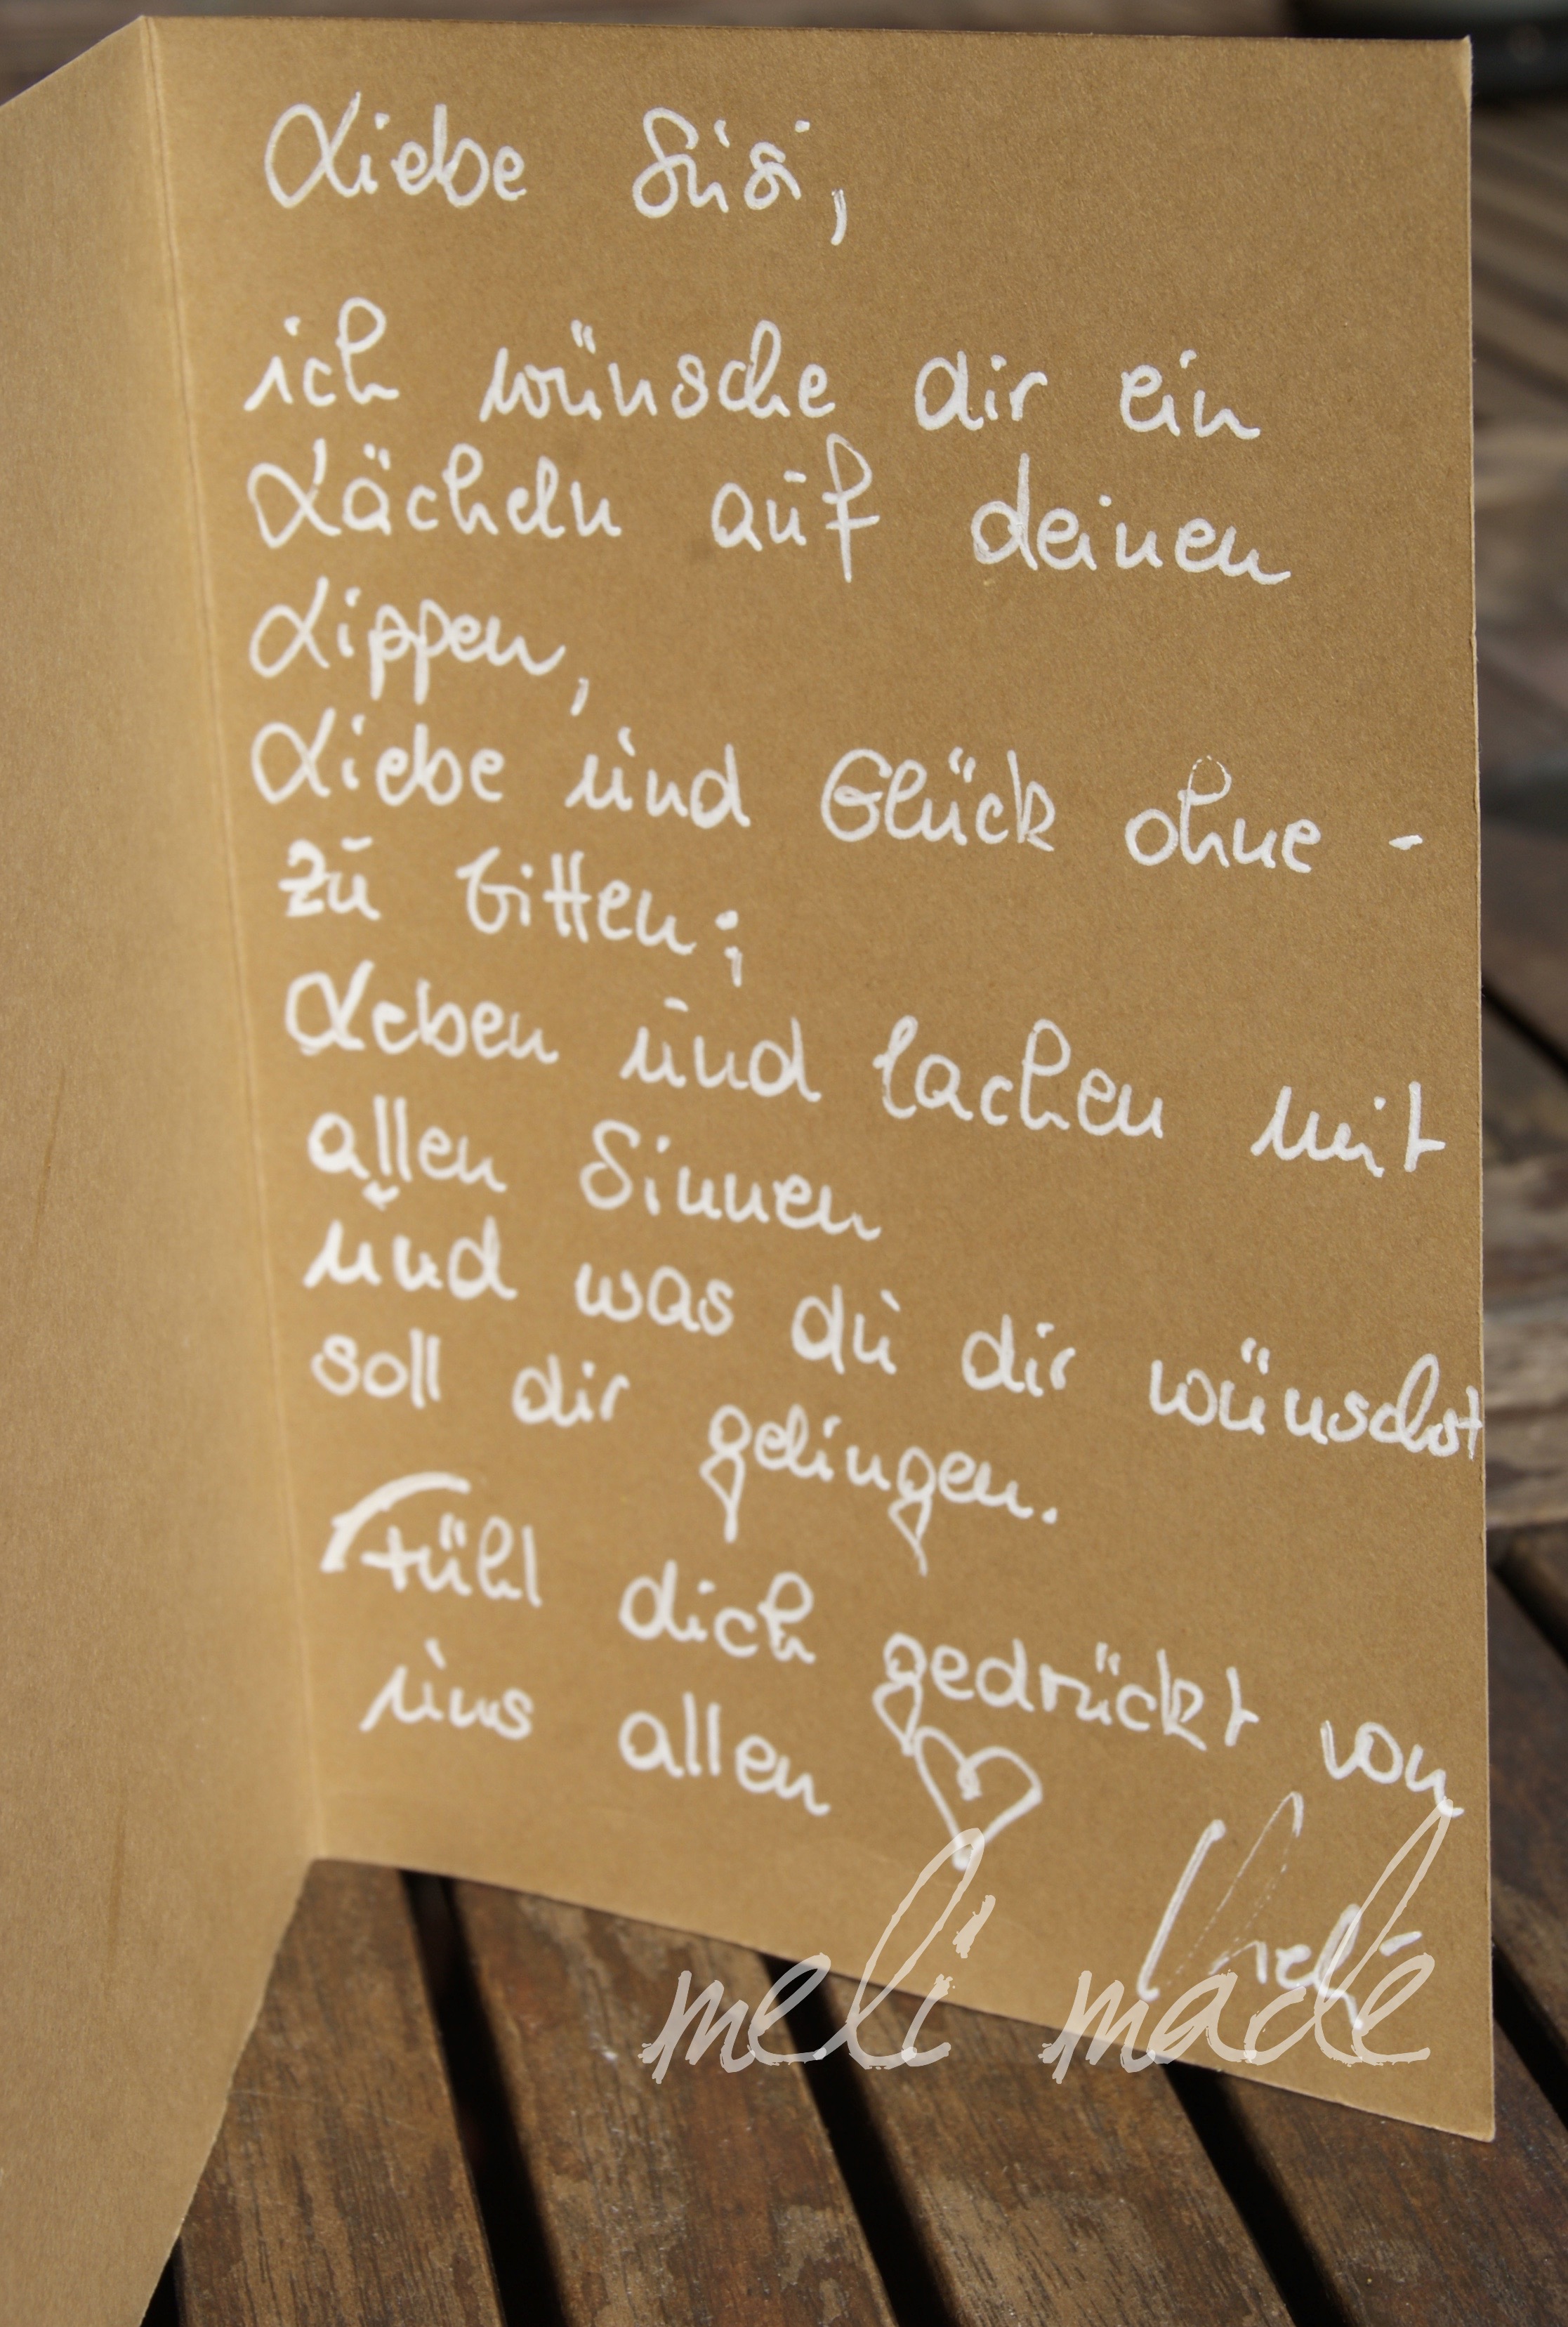 Liebe Susi,
ich wünsche dir ein
Lächeln auf deinen
Lippen,
Liebe und Glück ohne -
zu bitten;
Leben und lachen mit
allen Sinnen
und was du dir wünschst
soll dir gelingen.
Fühl dich gedrückt von
uns allen
meli made